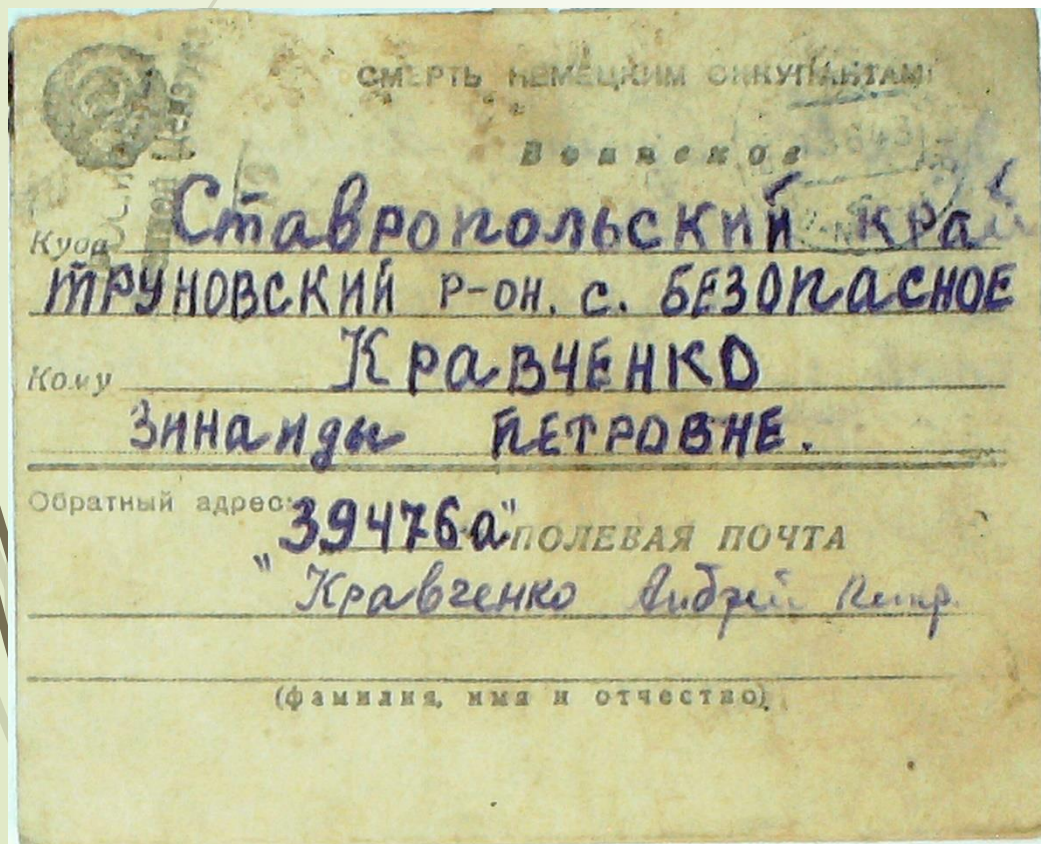 СМЕРТЬ НЕМЕЦКИМ ОККУПАНТАМ!
Воинское
Куда Ставропольский край
ТРУНОВСКИЙ Р-ОН. С. БЕЗОПАСНОЕ
Кому КРАВЧЕНКО
Зинаиды ПЕТРОВНЕ.
Обратный адрес: "39476а" ПОЛЕВАЯ ПОЧТА
"Кравченко Андрей Петр.
(фамилия, имя и отчество)